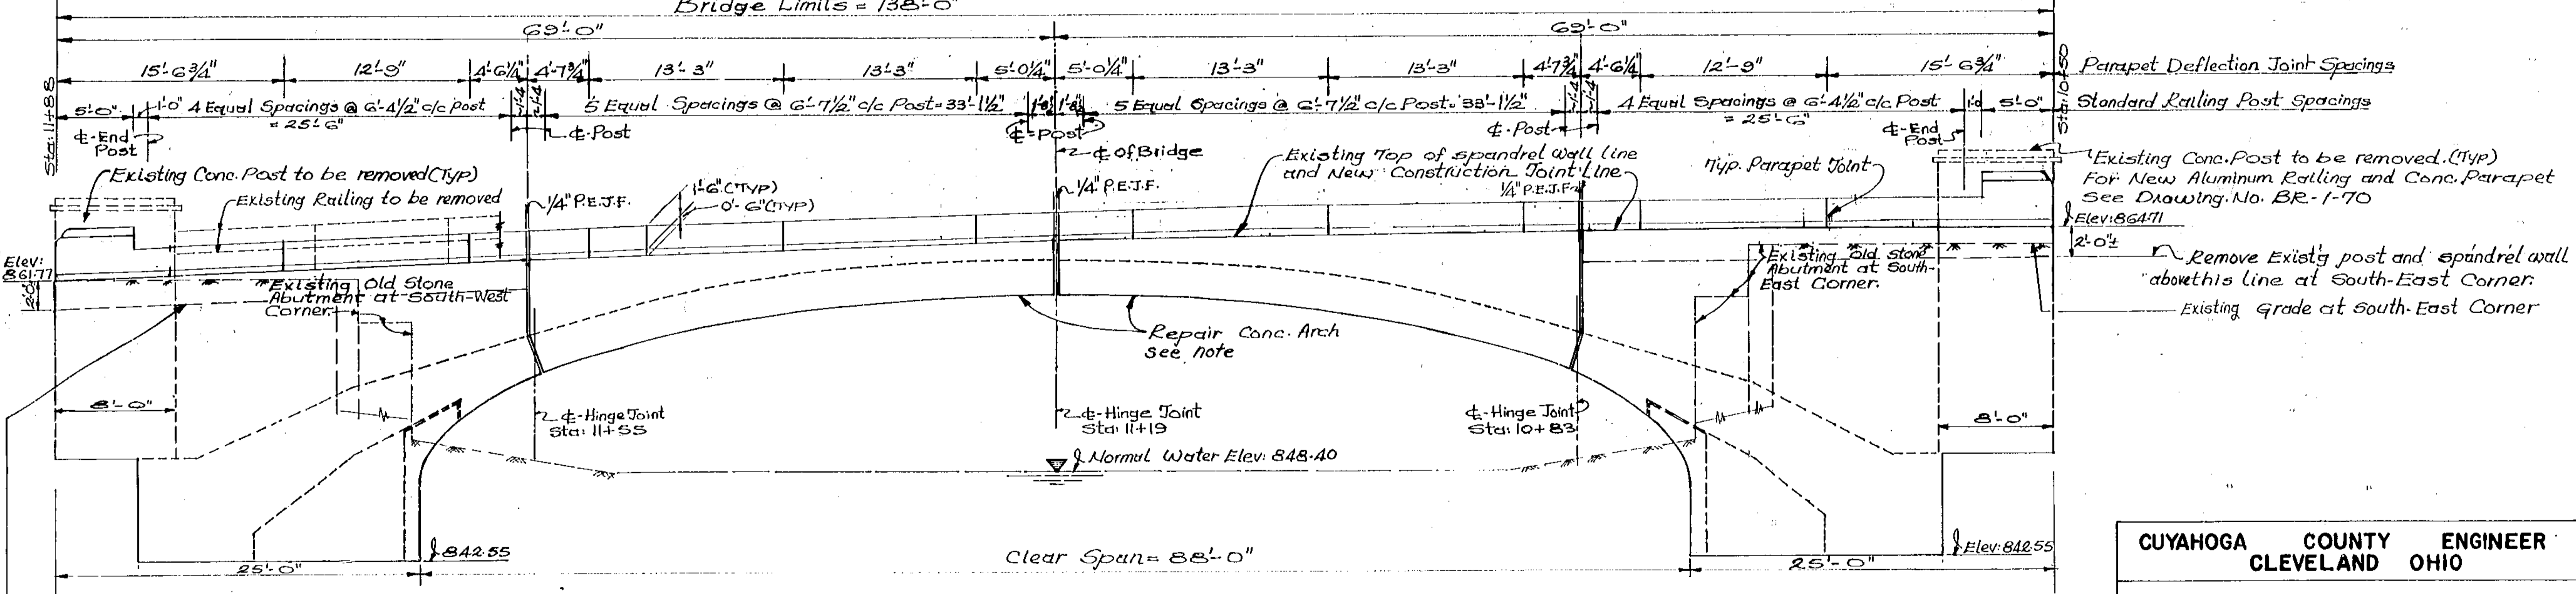 Bridge Limits = 138'-0"
69'-0"
69'-0"
15'-6 3/4"
12'-9"
4'-6 1/4"
4'-7 3/4"
13'-3"
13'-3"
5'-0 1/4"
5'-0 1/4"
13'-3"
13'-3"
4'-7 3/4
4'-6 1/4
12'-9"
15'-6 3/4"
Parapet Deflection Joint Spacings
Sta: 11+88
5'-0"
1'-0"
4 Equal Spacings @ 6'-4 1/2" c/c Post
= 25'-6"
1'-4
1'-4
5 Equal Spacings @ 6'-7 1/2" c/c Post = 33'-1 1/2"
5 Equal Spacings @ 6'-7 1/2" c/c Post = 33'-1 1/2"
1'-4
1'-4
4 Equal Spacings @ 6'-4 1/2" c/c Post
= 25'-6"
1'-0
5'-0"
Sta: 10+50
Standard Railing Post Spacings
℄-End
Post
℄-Post
℄-Post
℄-Post
℄-End
Post
℄ of Bridge
Existing Conc. Post to be removed (Typ)
Existing Railing to be removed
1/4" P.E.J.F.
1'-6" (TYP)
0'-6" (TYP)
1/4" P.E.J.F.
Existing Top of spandrel wall line
and New Construction Joint Line
1/4" P.E.J.F.
Typ. Parapet Joint
Existing Conc. Post to be removed. (Typ)
For New Aluminum Railing and Conc. Parapet
See Drawing. No. BR-1-70
Elev: 864.71
2'-0"±
Remove Exist'g post and spandrel wall
above this line at South-East Corner.
Existing Grade at South-East Corner
Elev:
861.77
Existing Old Stone
Abutment at South-West
Corner
Existing Old Stone
Abutment at South-
East Corner.
Repair Conc. Arch
see note
8'-0"
℄-Hinge Joint
Sta: 11+55
℄-Hinge Joint
Sta: 11+19
℄-Hinge Joint
Sta: 10+83
8'-0"
Normal Water Elev: 848.40
842.55
Elev: 842.55
25'-0"
Clear Span = 88'-0"
25'-0"
CUYAHOGA COUNTY ENGINEER
CLEVELAND OHIO